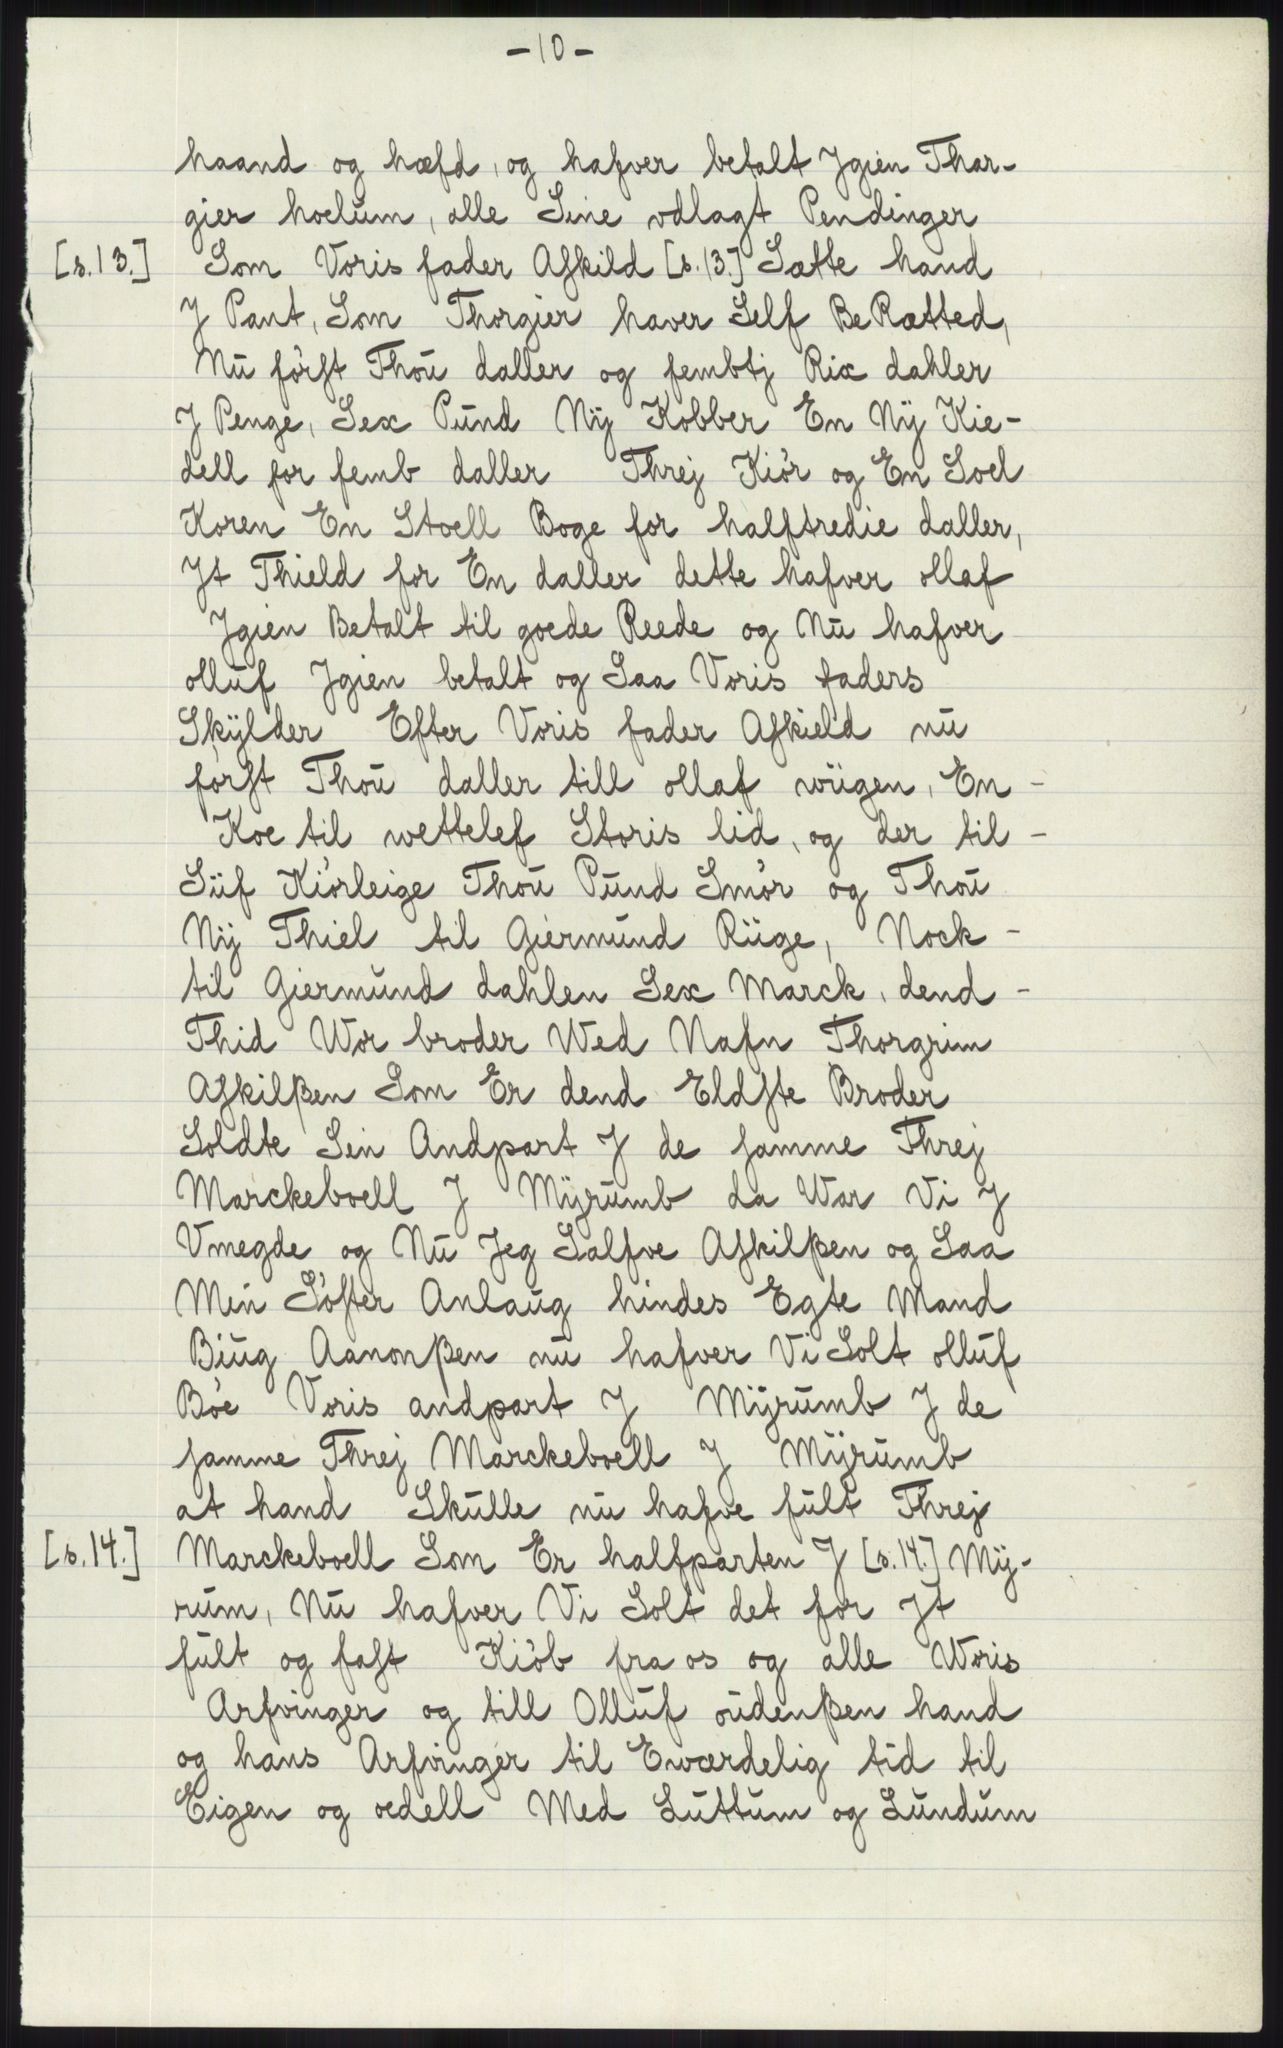 -10-
haand og hæfd, og hafver betalt Jgien Thor-
gier hoelum, alle Sine vdlagt Pendinger
[s.13.] Som Voris fader Askild [s.13.] Sætte hand
J Pant, Som Thorgier haver Self BeRætted,
Nu først Thou daller og fembtj Rix dahler
J Penge, Sex Pund Nÿ Kobber En Nÿ Kie-
dell for femb daller Threj Kiór og En Soel
Koren En Stoell Boge for halftredie daller,
Jt Thield for En daller dette hafver ollaf
Jgien Betalt til goede Reede og Nu hafver
olluf Jgien betalt og Saa Voris faders
Skÿlder Efter Voris fader Askield nu
først Thou daller till ollaf wiigen, En -
Koe til wettelef Storis lid, og der til -
Siif Kiórleige Thou Pund Smór og Thou
Nÿ Thiel til Giermund Riige, Nock -
til Giermund dahlen Sex Marck, dend -
Thid Wor broder Wed Nafn Thorgrim
Askilßen Som Er dend Eldste Broder
Soldte Sin Andpart J de samme Threj
Marckeboell J Mÿrumb da War Vi J
Vmegde og Nu Jeg Salfve Askilßen og Saa
Min Sóster Anlaug hindes Egte Mand
Biug Aanonßen nu hafver Vi Solt olluf
Bóe Voris andpart J Mÿrumb J de
samme Threj Marckeboell J Mÿrumb
at hand Skulle nu hafve fult Threj
[s.14.] Marckeboell Som Er halfparten J [s.14.] Mÿ-
rum, Nu hafver Vi Solt det for Jt
fult og fast Kiób fra os og alle Woris
Arfvinger og till Olluf oudenßen hand
og hans Arfvinger til Ewærdelig tid til
Eigen og oedell Med Luttum og Lundum